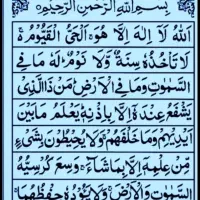 بِسْمِ اللّٰهِ الرَّحْمٰنِ الرَّحِيْمِ
اَللّٰهُ لَآ اِلٰهَ اِلَّا هُوَ ۚ اَلْحَىُّ الْقَيُّوْمُ ۬ۚ
لَا تَاْخُذُهٗ سِنَةٌ وَّلَا نَوْمٌ ؕ لَهٗ مَا فِى
السَّمٰوٰتِ وَمَا فِى الْاَرْضِ ؕ مَنْ ذَا الَّذِىْ
يَشْفَعُ عِنْدَهٗٓ اِلَّا بِاِذْنِهٖ ؕ يَعْلَمُ مَا بَيْنَ
اَيْدِيْهِمْ وَمَا خَلْفَهُمْ ۚ وَلَا يُحِيْطُوْنَ بِشَىْءٍ
مِّنْ عِلْمِهٖٓ اِلَّا بِمَا شَآءَ ۚ وَسِعَ كُرْسِيُّهُ
السَّمٰوٰتِ وَالْاَرْضَ ۚ وَلَا يَـُٔوْدُهٗ حِفْظُهُمَا ۚ